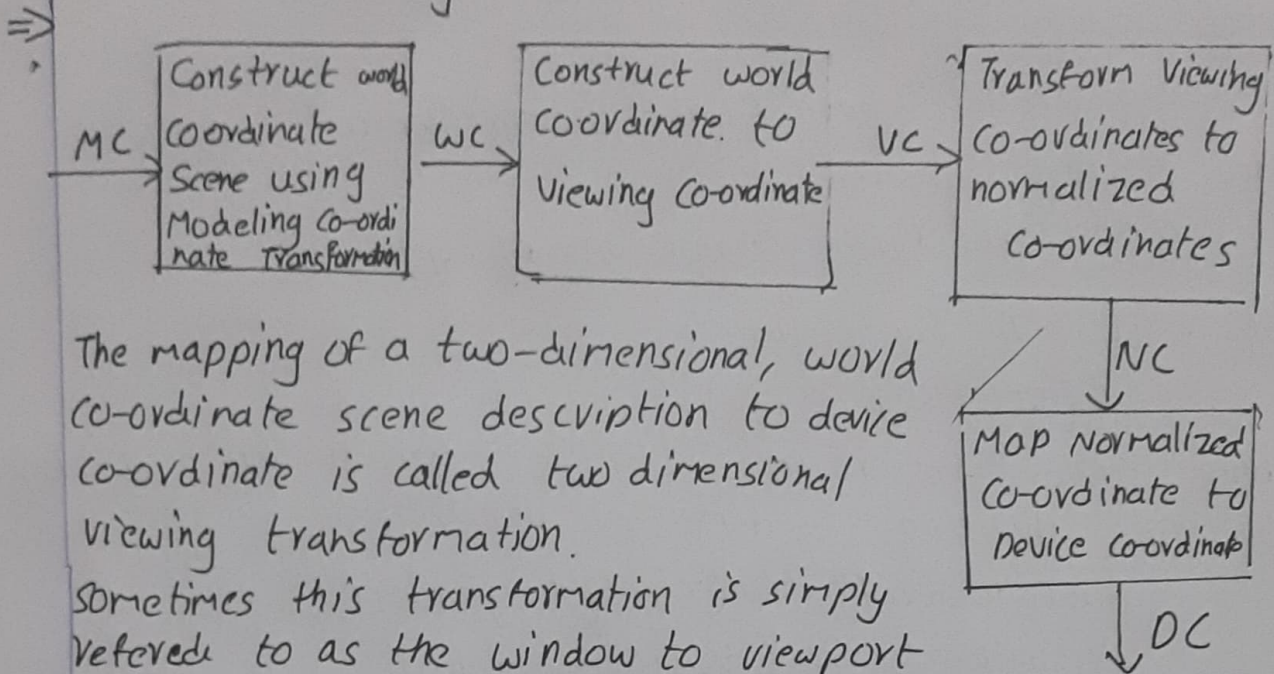 ⇒
MC
Construct world
coordinate
Scene using
Modeling co-ordi
nate Transformation
WC
Construct world
coordinate. to
viewing co-ordinate
VC
Transform Viewing
co-ordinates to
normalized
co-ordinates
NC
Map Normalized
co-ordinate to
Device co-ordinate
DC
The mapping of a two-dimensional, world
co-ordinate scene description to device
co-ordinate is called two dimensional
viewing transformation.
sometimes this transformation is simply
refered to as the window to viewport